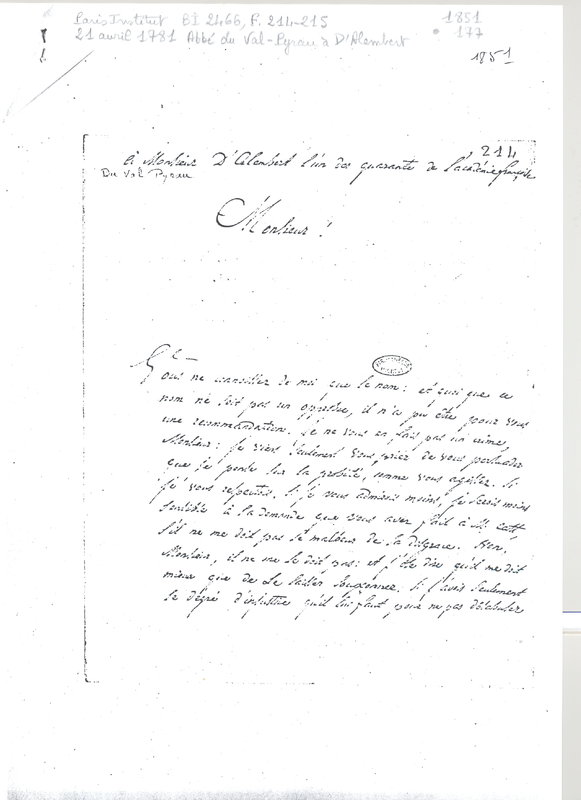 Paris Institut BI 2466, F. 214-215
1851
21 avril 1781 Abbé du Val-Pyrau à D'Alembert
177
1851
214
à Monsieur D'Alembert l'un des quarante de l'académie françoise
Du Val Pyrau
Monsieur!
Vous ne connoissez de moi que le nom: et quoi que ce
nom ne soit pas un opprobre, il n'a pu être pour vous
une recommandation. je ne vous en fais pas un crime,
Monsieur: je viens seulement vous prier de vous persuader
que je pense sur la probité, comme vous agissez. Si
je vous respectois. Si je vous admirois moins, je serois moins
sensible à la demande que vous avez fait à M. Catt
s'il ne me doit pas le malheur de sa disgrace. Non.
Monsieur, il ne me le doit pas: et j'ose dire qu'il me doit
mieux que de le laisser soupçonner. Si l'avois seulement
le dégré d'injustice qu'il lui faut pour ne pas désabuser